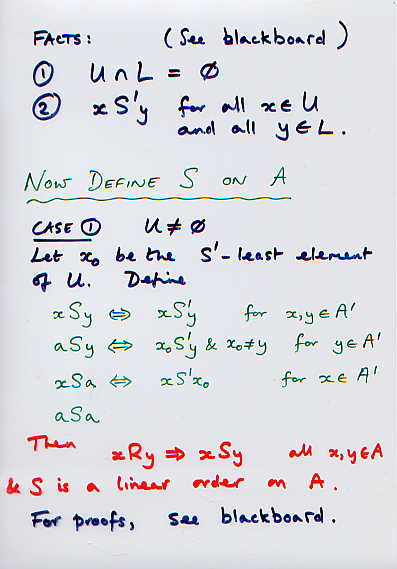 FACTS: (See blackboard)
① U ∩ L = ∅
② x S'y for all x ∈ U
and all y ∈ L.
NOW DEFINE S ON A
CASE ① U ≠ ∅
Let x₀ be the S'-least element
of U. Define
xSy ⇔ xS'y for x,y ∈ A'
aSy ⇔ x₀S'y & x₀≠y for y ∈ A'
xSa ⇔ xS'x₀ for x ∈ A'
aSa
Then xRy ⇒ xSy all x,y ∈ A
& S is a linear order on A.
For proofs, see blackboard.